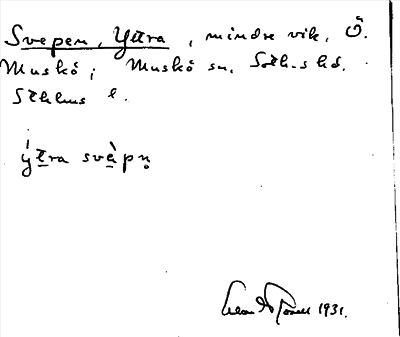 Svepen, Yttra, mindre vik, Ö.
Muskö; Muskö sn. Soth-s hd.
Sthlms l.
ýt̲ra svà̲pṇ
1931.